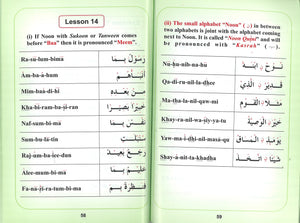 Lesson 14
(i) If Noon with Sakoon or Tanween comes
before "Baa" then it is pronounced "Meem".
Ra-sú-lum-bimá رَسُوْلٌۢ بِمَا
Ám-ba-á-hum اَنْۢبَاَهُمْ
Mim-baá-di-hí مِنْۢ بَعْدِهٖ
Khabí-ram-ba-sí-ran خَبِيْرًۢا بَصِيْرًا
Naf-sum-bi-má نَفْسٌۢ بِمَا
Sum-bu-lá-tin سُنْۢبُلٰتٍ
Raj-úm-ba-íee-dun رَجْعٌۢ بَعِيْدٌ
Alee-mum-bi-má عَلِيْمٌۢ بِمَا
Fa-ná-zi-ra-tum-bi-ma فَنٰظِرَةٌۢ بِمَ
58
(ii) The small alphabet "Noon" (ن) in between
two alphabets is joint with the alphabet coming
next to Noon. It is called "Noon Qutni" and will
be pronounced with "Kasrah" (ـِ).
Nú-hu-nib-na-hú نُوْحُ ۨ ابْنَهٗ
Qa-dí-ru-nil-la-dhee قَدِيْرُ ۨ الَّذِيْ
Ma-tha-la-nil-qaw-mi مَثَلَا ۨ الْقَوْمُ
Khay-ra-nil-wa-siy-ya-tu خَيْرَا ۨ الْوَصِيَّةُ
Yaw-ma-í-dhi-nil-masáq يَوْمَئِذِ ۨ الْمَسَاقُ
Shay-á-nit-ta-khadha شَيْئَا ۨ اتَّخَذَ
59